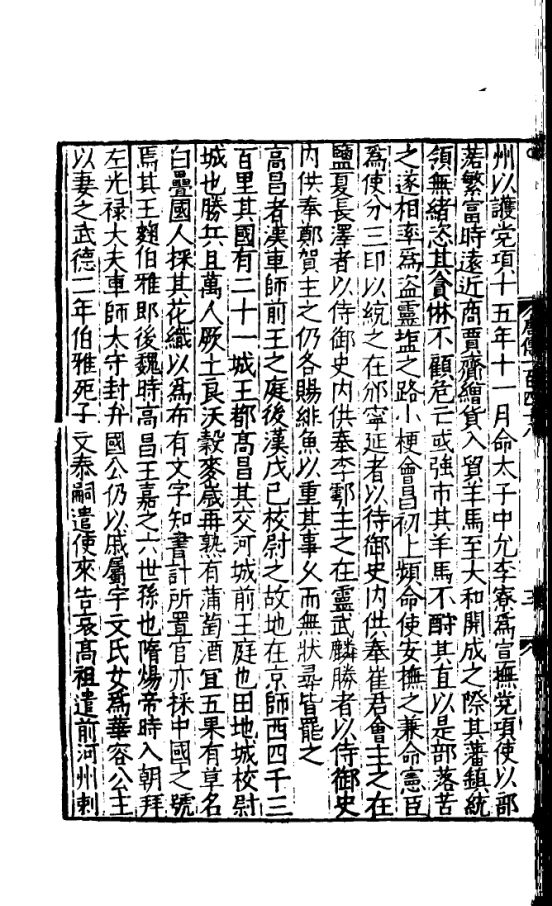 州以護党項十五年十一月命太子中允李寮爲宣撫党項使以部
落繁富時遠近商賈齎繒貨入貿羊馬至大和開成之際其藩鎮統
領無緒恣其貪惏不顧危亡或強市其羊馬不酧其直以是部落苦
之遂相率爲盗靈塩之路小梗會昌初上頻命使安撫之兼命憲臣
爲使分三印以統之在邠寧延者以侍御史内供奉崔君會主之在
鹽夏長澤者以侍御史内供奉李鄠主之在靈武麟勝者以侍御史
内供奉鄭賀主之仍各賜緋魚以重其事乆而無狀尋皆罷之
高昌者漢車師前王之庭後漢戊己校尉之故地在京師西四千三
百里其國有二十一城王都髙昌其交河城前王庭也田地城校尉
城也勝兵且萬人厥土良沃穀麥歳再熟有蒲萄酒宜五果有草名
白疊國人採其花織以爲布有文字知書計所置官亦採中國之號
焉其王麴伯雅即後魏時高昌王嘉之六世孫也隋煬帝時入朝拜
左光禄大夫車師太守封弁國公仍以戚屬宇文氏女爲華容公主
以妻之武德二年伯雅死子文泰嗣遣使來告哀髙祖遣前河州刺
唐傳百四十八
三